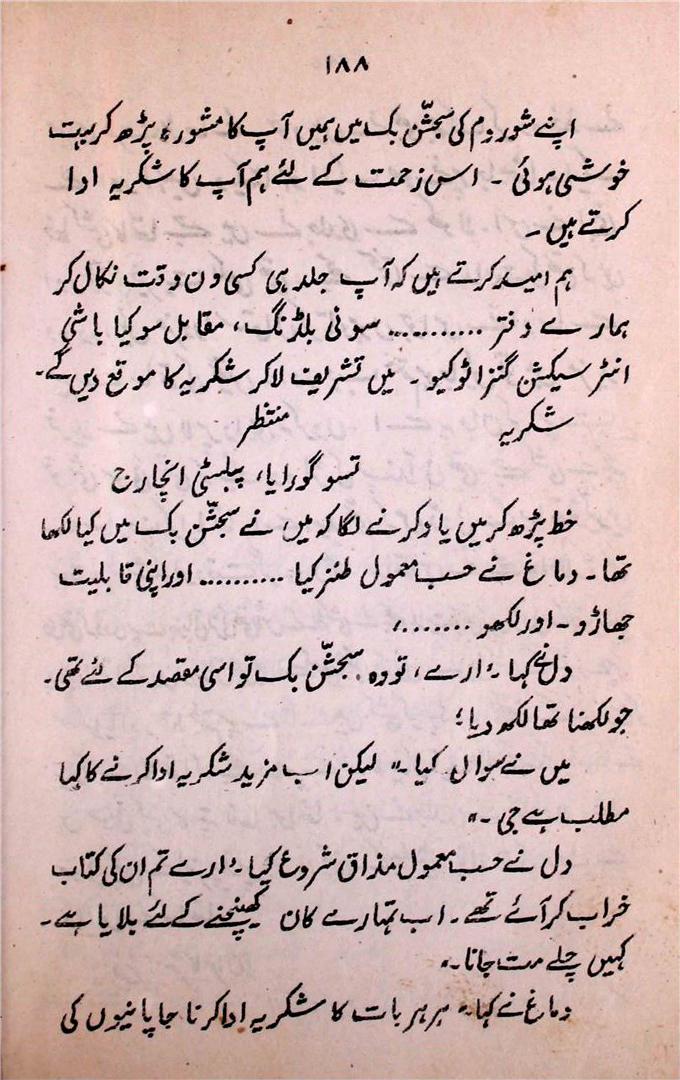 ۱۸۸
اپنے شوروم کی سجشّن بک میں ہمیں آپ کا مشورہ پڑھ کر بہت
خوشی ہوئی ۔ اس زحمت کے لئے ہم آپ کا شکریہ ادا
کرتے ہیں ۔
ہم امید کرتے ہیں کہ آپ جلد ہی کسی دن وقت نکال کر
ہمارے دفتر .......... سونی بلڈنگ، مقابل سوکیا باشی
انٹر سیکشن گنزا ٹوکیو ۔ میں تشریف لا کر شکریہ کا موقع دیں گے۔
شکریہ منتظر
تسو گورایا، پبلسٹی انچارج
خط پڑھ کر میں یاد کرنے لگا کہ میں نے سجشّن بک میں کیا لکھا
تھا ۔ دماغ نے حسب معمول طنز کیا .......... اور اپنی قابلیت
جھاڑو ۔ اور لکھو .......،
دل نے کہا ۔ ارے ، تو وہ سجشّن بک تو اسی مقصد کے لئے تھی ۔
جو لکھنا تھا لکھ دیا؛
میں نے سوال کیا ۔" لیکن اب مزید شکریہ ادا کرنے کا کیا
مطلب ہے جی ۔"
دل نے حسب معمول مذاق شروع کیا ۔ ارے تم ان کی کتاب
خراب کر آئے تھے ۔ اب تمہارے کان کھینچنے کے لئے بلایا ہے ۔
کہیں چلے مت جانا ۔"
دماغ نے کہا ۔" ہر ہر بات کا شکریہ ادا کرنا جاپانیوں کی